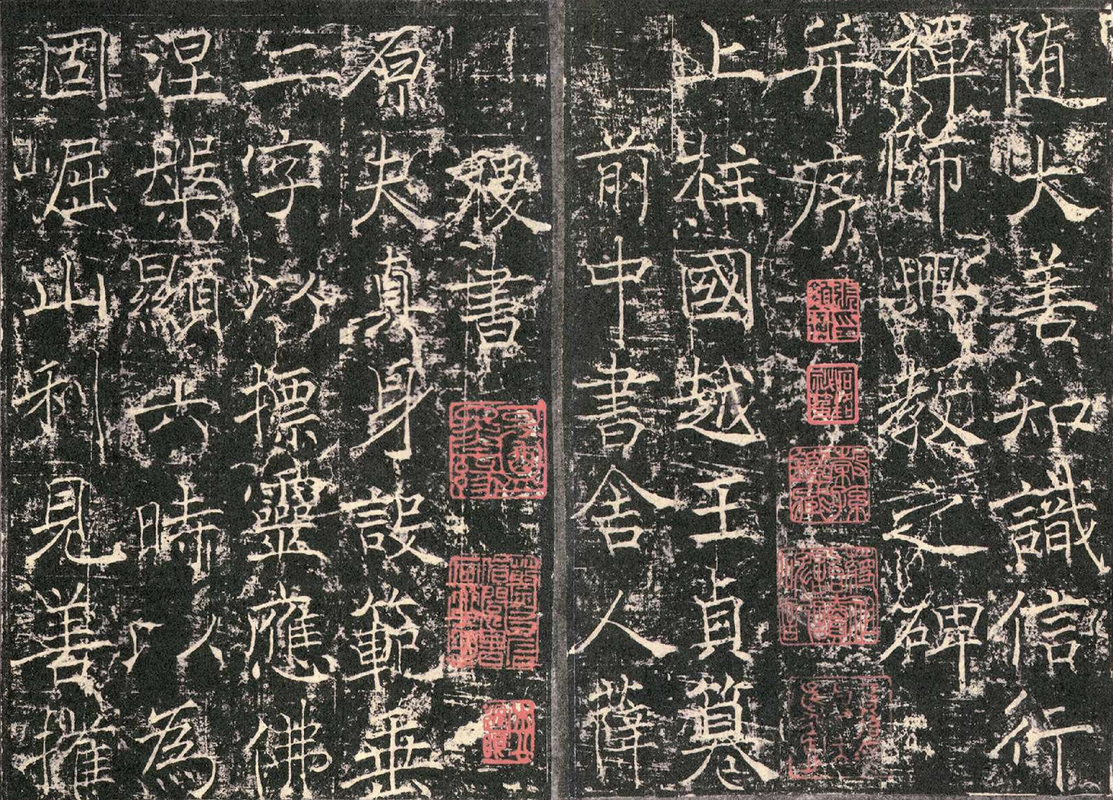 随大善知識信行
禪師興教之碑
并序
上柱國越王貞篡
前中書舍人薛
稷書
原夫真身設範垂
二字以摽靈應佛
涅槃顯六時以為
固崛山利見善權